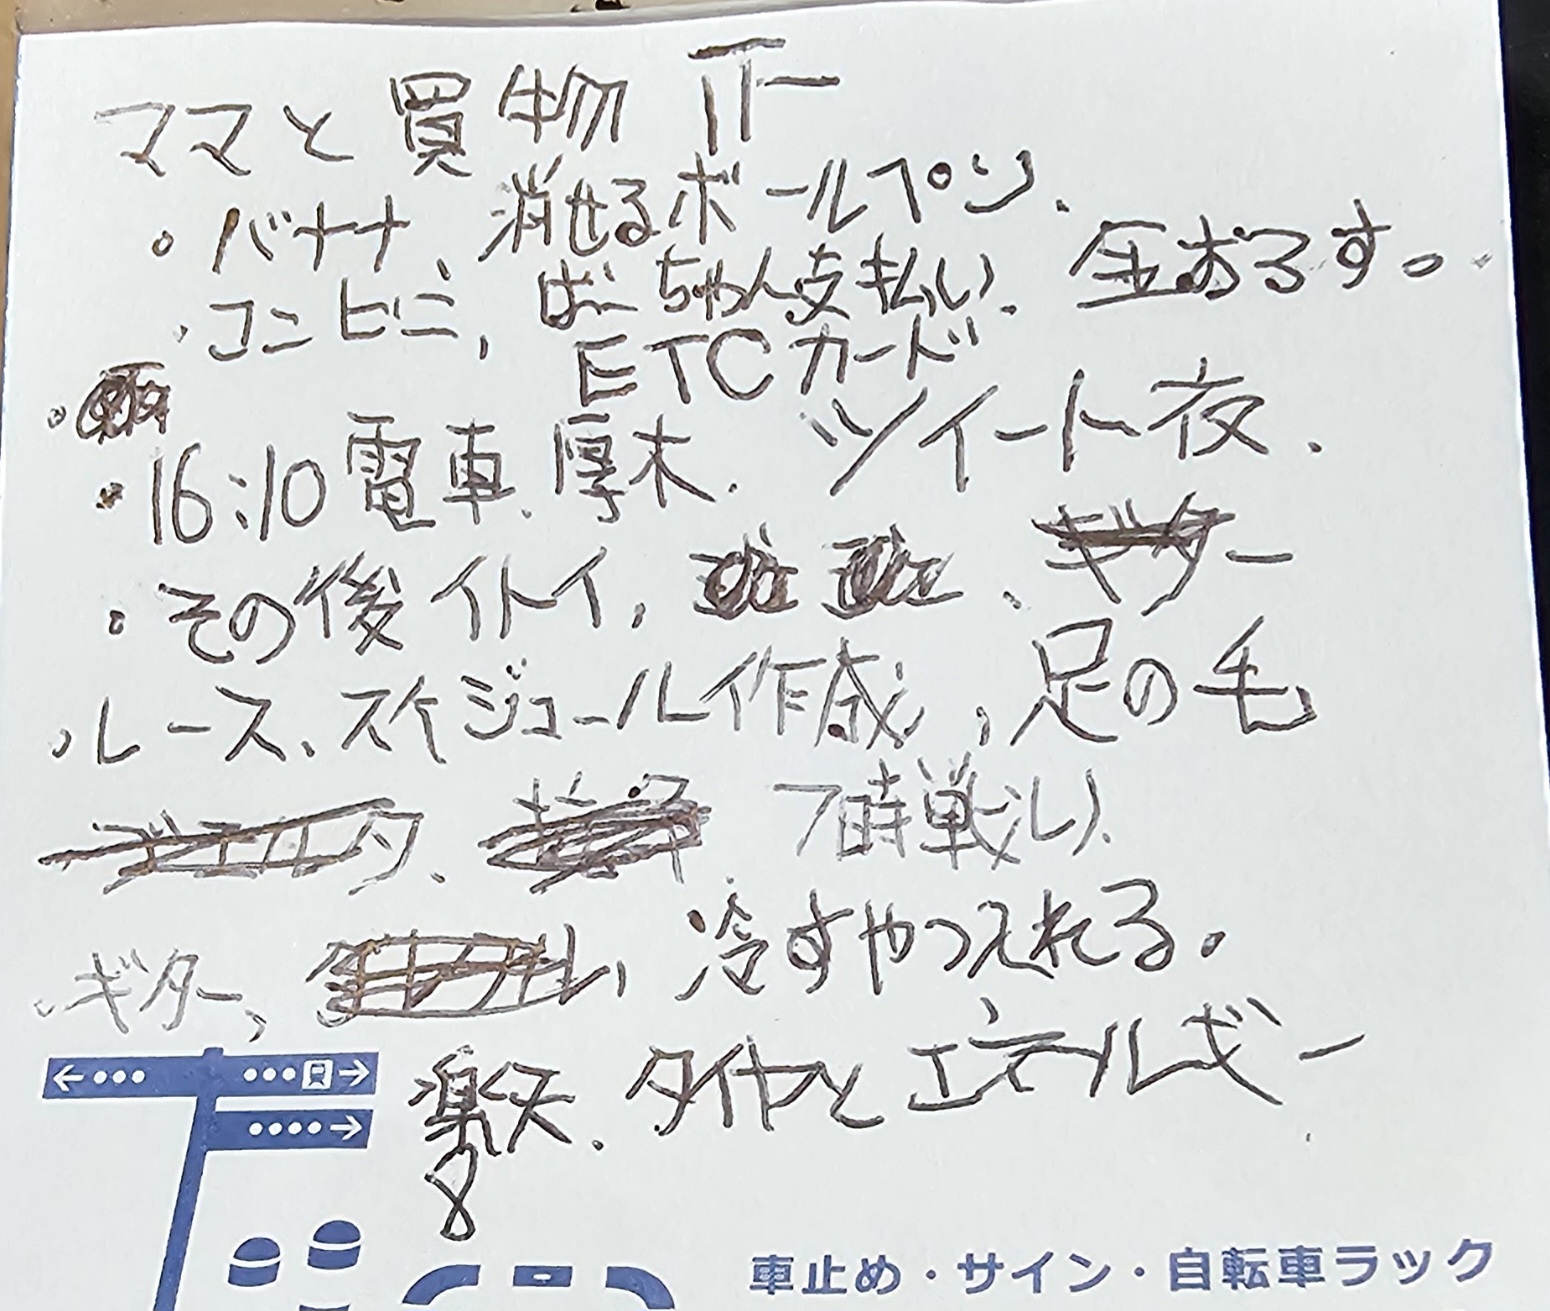 ママと買物 正
・バナナ、消せるボールペン、
・コンビニ、ばーちゃん支払い、金おろす。
ETCカード
・16:10電車、厚木、ツイート夜、
・その後イトイ、ギター
・ルース、スケジュール作成、足の毛
7時戦い、
・ギター、冷すやつえれる。
楽天、ダイヤとエネルギー
8
車止め・サイン・自転車ラック